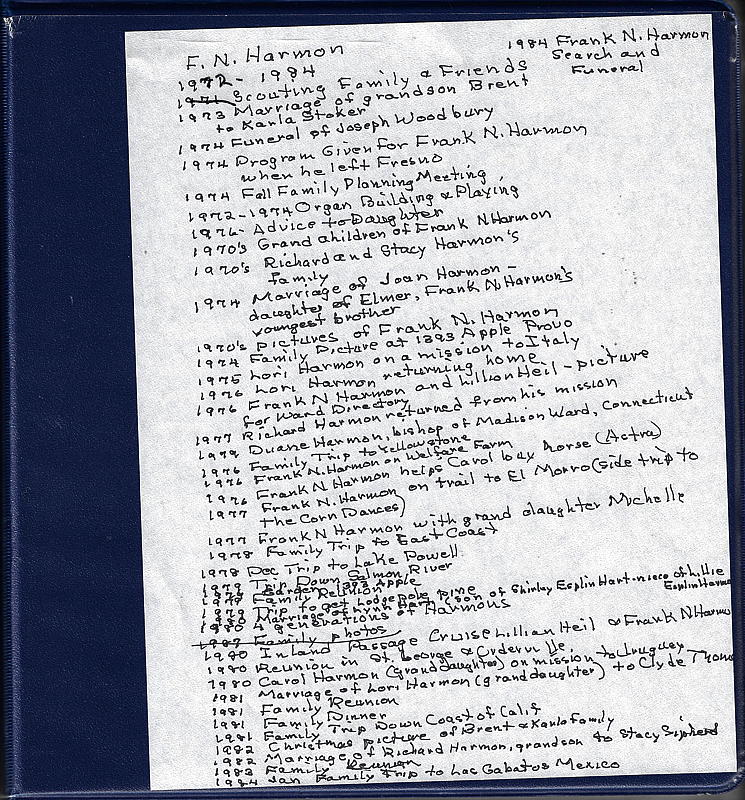 F. N. Harmon
1984 Frank N. Harmon
Search and
Funeral
1972 - 1984
1971 Scouting Family & Friends
1973 Marriage of grandson Brent
to Karla Stoker
1974 Funeral of Joseph Woodbury
1974 Program Given for Frank N. Harmon
when he left Fresno
1974 Fall Family Planning Meeting
1972-1974 Organ Building & Playing
1976- Advice to Daughter
1970's Grand children of Frank N Harmon
1970's Richard and Stacy Harmon's
family
1974 Marriage of Joan Harmon -
daughter of Elmer, Frank N. Harmon's
youngest brother
1970's pictures of Frank N. Harmon
1974 Family Picture at 1393 Apple Provo
1975 Lori Harmon on a mission to Italy
1976 Lori Harmon returning home
1976 Frank N Harmon and Lillian Heil - picture
for Ward Directory
1977 Richard Harmon returned from his mission
1979 Duane Harmon, bishop of Madison Ward, Connecticut
1976 Family Trip to Yellowstone
1976 Frank N. Harmon on Welfare Farm
1976 Frank N Harmon helps Carol buy horse (Actra)
1977 Frank N. Harmon on trail to El Morro (side trip to
the Corn Dances)
1977 Frank N Harmon with grand daughter Michelle
1978 Family Trip to East Coast
1978 Dec Trip to Lake Powell
1979 Trip Down Salmon River
1979 Garden 1393 Apple
1979 Family Reunion
1979 Trip to get Lodge pole pine
1980 Marriage of Lynn Hart, son of Shirley Esplin Hart-niece of Lillie
Esplin Harmo
1980 4 generations of Harmons
Family photos
1980 Inland Passage Cruise Lillian Heil & Frank N Harmo
1980 Reunion in St. George & Orderville
1980 Carol Harmon (Granddaughter) on mission to Uruguay
1981 Marriage of Lori Harmon (granddaughter) to Clyde
1981 Family Reunion
1981 Family Dinner
1981 Family Trip Down Coast of Calif
1982 Christmas picture of Brent & Karla family
1982 Marriage of Richard Harmon, grandson to Stacy
1983 Family Reunion
1984 Jan Family Trip to Los Gabatos Mexico